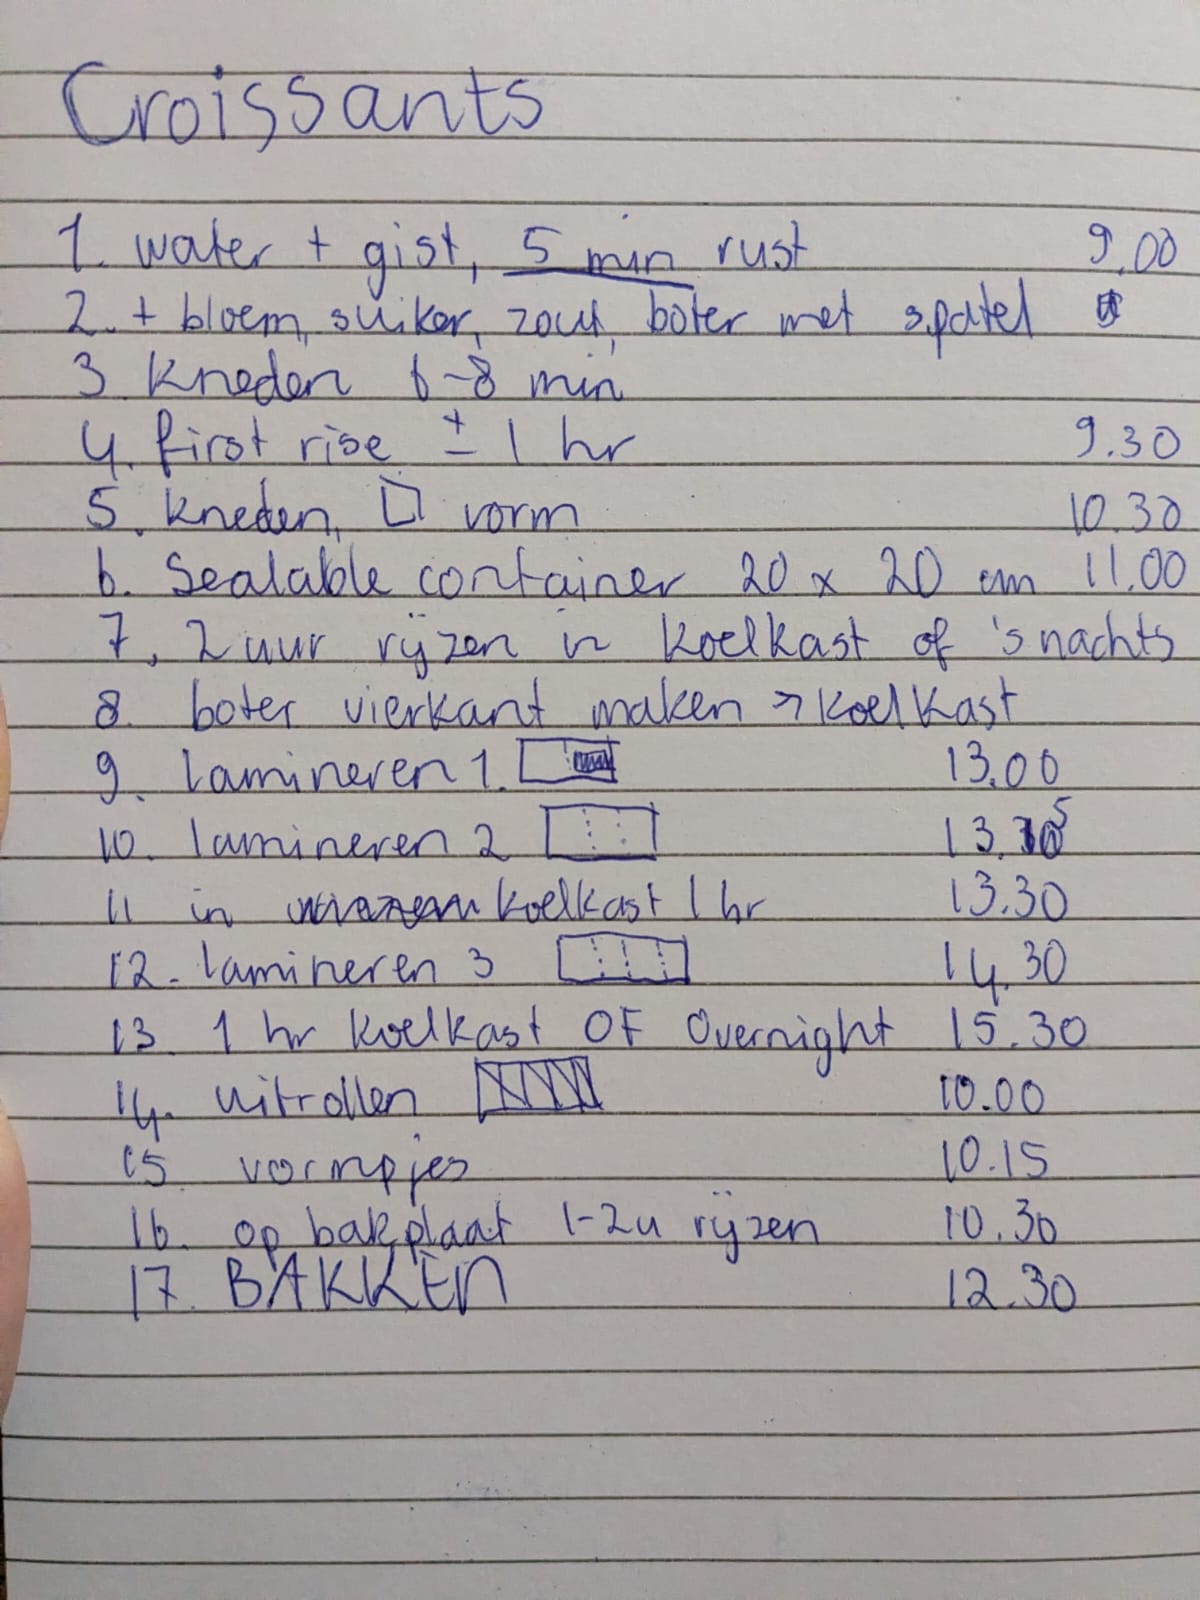 Croissants
1. water + gist, 5 min rust 9.00
2. + bloem, suiker, zout, boter met spatel
3. kneden 6-8 min
4. first rise ± 1 hr 9.30
5. kneden, vorm 10.30
6. Sealable container 20 x 20 cm 11.00
7. 2 uur rijzen in koelkast of 's nachts
8. boter vierkant maken → koelkast
9. lamineren 1. 13.00
10. lamineren 2 13.15
11 in koelkast 1 hr 13.30
12. lamineren 3 14.30
13. 1 hr koelkast OF Overnight 15.30
14. uitrollen 10.00
15 vormpjes 10.15
16. op bakplaat 1-2u rijzen 10.30
17. BAKKEN 12.30